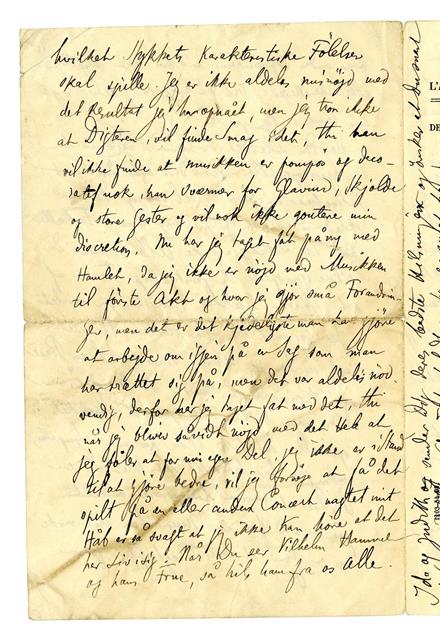 hvilket Stykkets Karakteristiske Følelser
skal spille. Jeg er ikke aldeles misnöjd med
det Resultat jeg har opnået, men jeg tror ikke
at Digteren, vil finde Smag i det, thi han
vil ikke finde at musikken er pompös og deco-
ratif nok, han sværmer for Glavind, Skjolde
og store Gester og vil nok ikke goutere min
discretion. Nu har jeg taget fat påny med
Hamlet, da jeg ikke er nöjd med Musikken
til förste Akt og hvor jeg gjör små Forandrin-
ger, men det er det kjedeligste man kan gjöre
at arbejde om igjen på en Sag som man
har trættet sig på, men det var aldeles nöd-
vendig, derfor har jeg taget fat med det, thi
når jeg bliver såvidt nöjd med det
jeg föler at for min egen Del, jeg ikke er i Stand
til at gjöre bedre, vil jeg forsöge at få det
spilt på en eller anden Concert
Håb er så svagt at jeg ikke kan höre at det
har Liv i sig. Når Du ser Vilhelm Hammer
og hans Frue, så hils ham fra os alle.
Ida og Judith og sender Dig deres bedste Hilsninger og önsker at Du snart